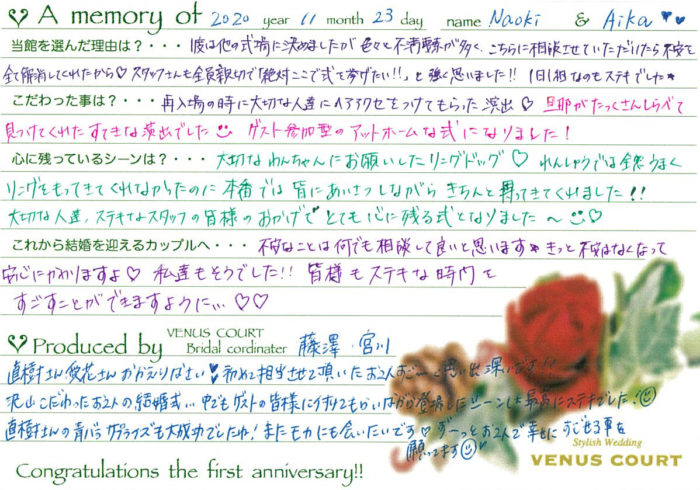 A memory of 2020 year 11 month 23 day name Naoki & Aika
当館を選んだ理由は？・・・彼は他の式場に決めましたが色々と不満要素が多く、こちらに相談させていただけたら不安を
全て解消してくれたから♡ スタッフさんも全員親切で「絶対ここで式を挙げたい!!」と強く思いました!! 1日1組なのもステキでした★
こだわった事は？・・・再入場の時に大切な人達にヘアアクセをつけてもらった演出♡ 旦那がたっくさんしらべて
見つけてくれたすてきな演出でした ゲスト参加型のアットホームな式になりました！
心に残っているシーンは？・・・大切なわんちゃんにお願いしたリングドッグ♡ れんしゅうでは全然うまく
リングをもってきてくれなかったのに本番では皆にあいさつしながらきちんと持ってきてくれました!!
大切な人達、ステキなスタッフの皆様のおかげでとても心に残る式となりました〜♡
これから結婚を迎えるカップルへ・・・不安なことは何でも相談して良いと思います★きっと不安はなくなって
安心にかわりますよ♡ 私達もそうでした!! 皆様もステキな時間を
すごすことができますように… ♡♡
Produced by VENUS COURT Bridal cordinater 藤澤・宮川
直樹さん愛花さんおかえりなさい♥初めて担当させて頂いたお2人 思い出深いです!!
沢山こだわったお2人の結婚式… 中でもゲストの皆様に 登場したシーンは最高にステキでした！
直樹さんの サプライズも大成功でしたね！またモカにも会いたいです♡ずーっとお2人で幸せにすごせる事を
願ってます
Stylish Wedding
VENUS COURT
Congratulations the first anniversary!!